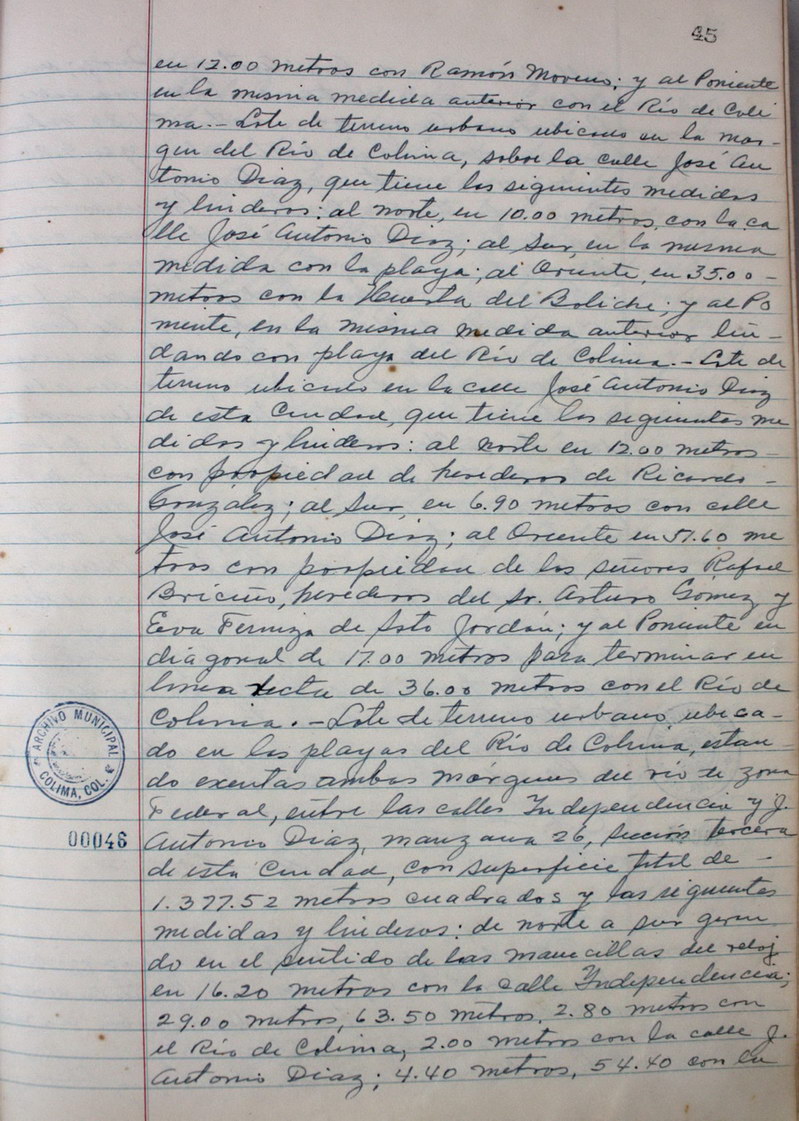 45
en 12.00 metros con Ramón Moreno; y al Poniente
en la misma medida anterior con el Río de Coli
ma.- Lote de terreno urbano ubicado en la mar-
gen del Río de Colima, sobre la calle José An
tonio Diaz, que tiene las siguientes medidas
y linderos: al norte, en 10.00 metros, con la ca
lle José Antonio Diaz; al Sur, en la misma
medida con la playa; al Oriente, en 35.00-
metros con la Huerta del Boliche; y al Po
niente, en la misma medida anterior lin-
dando con playa del Río de Colima.- Lote de
terreno ubicado en la calle José Antonio Diaz
de esta Ciudad, que tiene las siguientes me
didas y linderos: al norte en 12.00 metros-
con propiedad de herederos de Ricardo-
González; al Sur, en 6.90 metros con calle
José Antonio Diaz; al Oriente en 57.60 me
tros con propiedad de los señores Rafael
Briceño, herederos del Sr. Arturo Gómez y
Eva de Soto Jordán; y al Poniente en
diagonal de 17.00 metros para terminar en
linea recta de 36.00 metros con el Río de
Colima.- Lote de terreno urbano ubica-
do en las playas del Río de Colima, estan-
do exentas ambas márgenes del río de zona
Federal, entre las calles Independencia y J.
Antonio Diaz, manzana 26, Sección tercera
de esta Ciudad, con superficie total de -
1.377.52 metros cuadrados y las siguientes
medidas y linderos: de norte a sur giran
do en el sentido de las manecillas del reloj
en 16.20 metros con la calle Independencia;
29.00 metros, 63.50 metros, 2.80 metros con
el Río de Colima, 2.00 metros con la calle J.
Antonio Diaz; 4.40 metros, 54.40 con la
ARCHIVO MUNICIPAL
COLIMA, COL.
00046